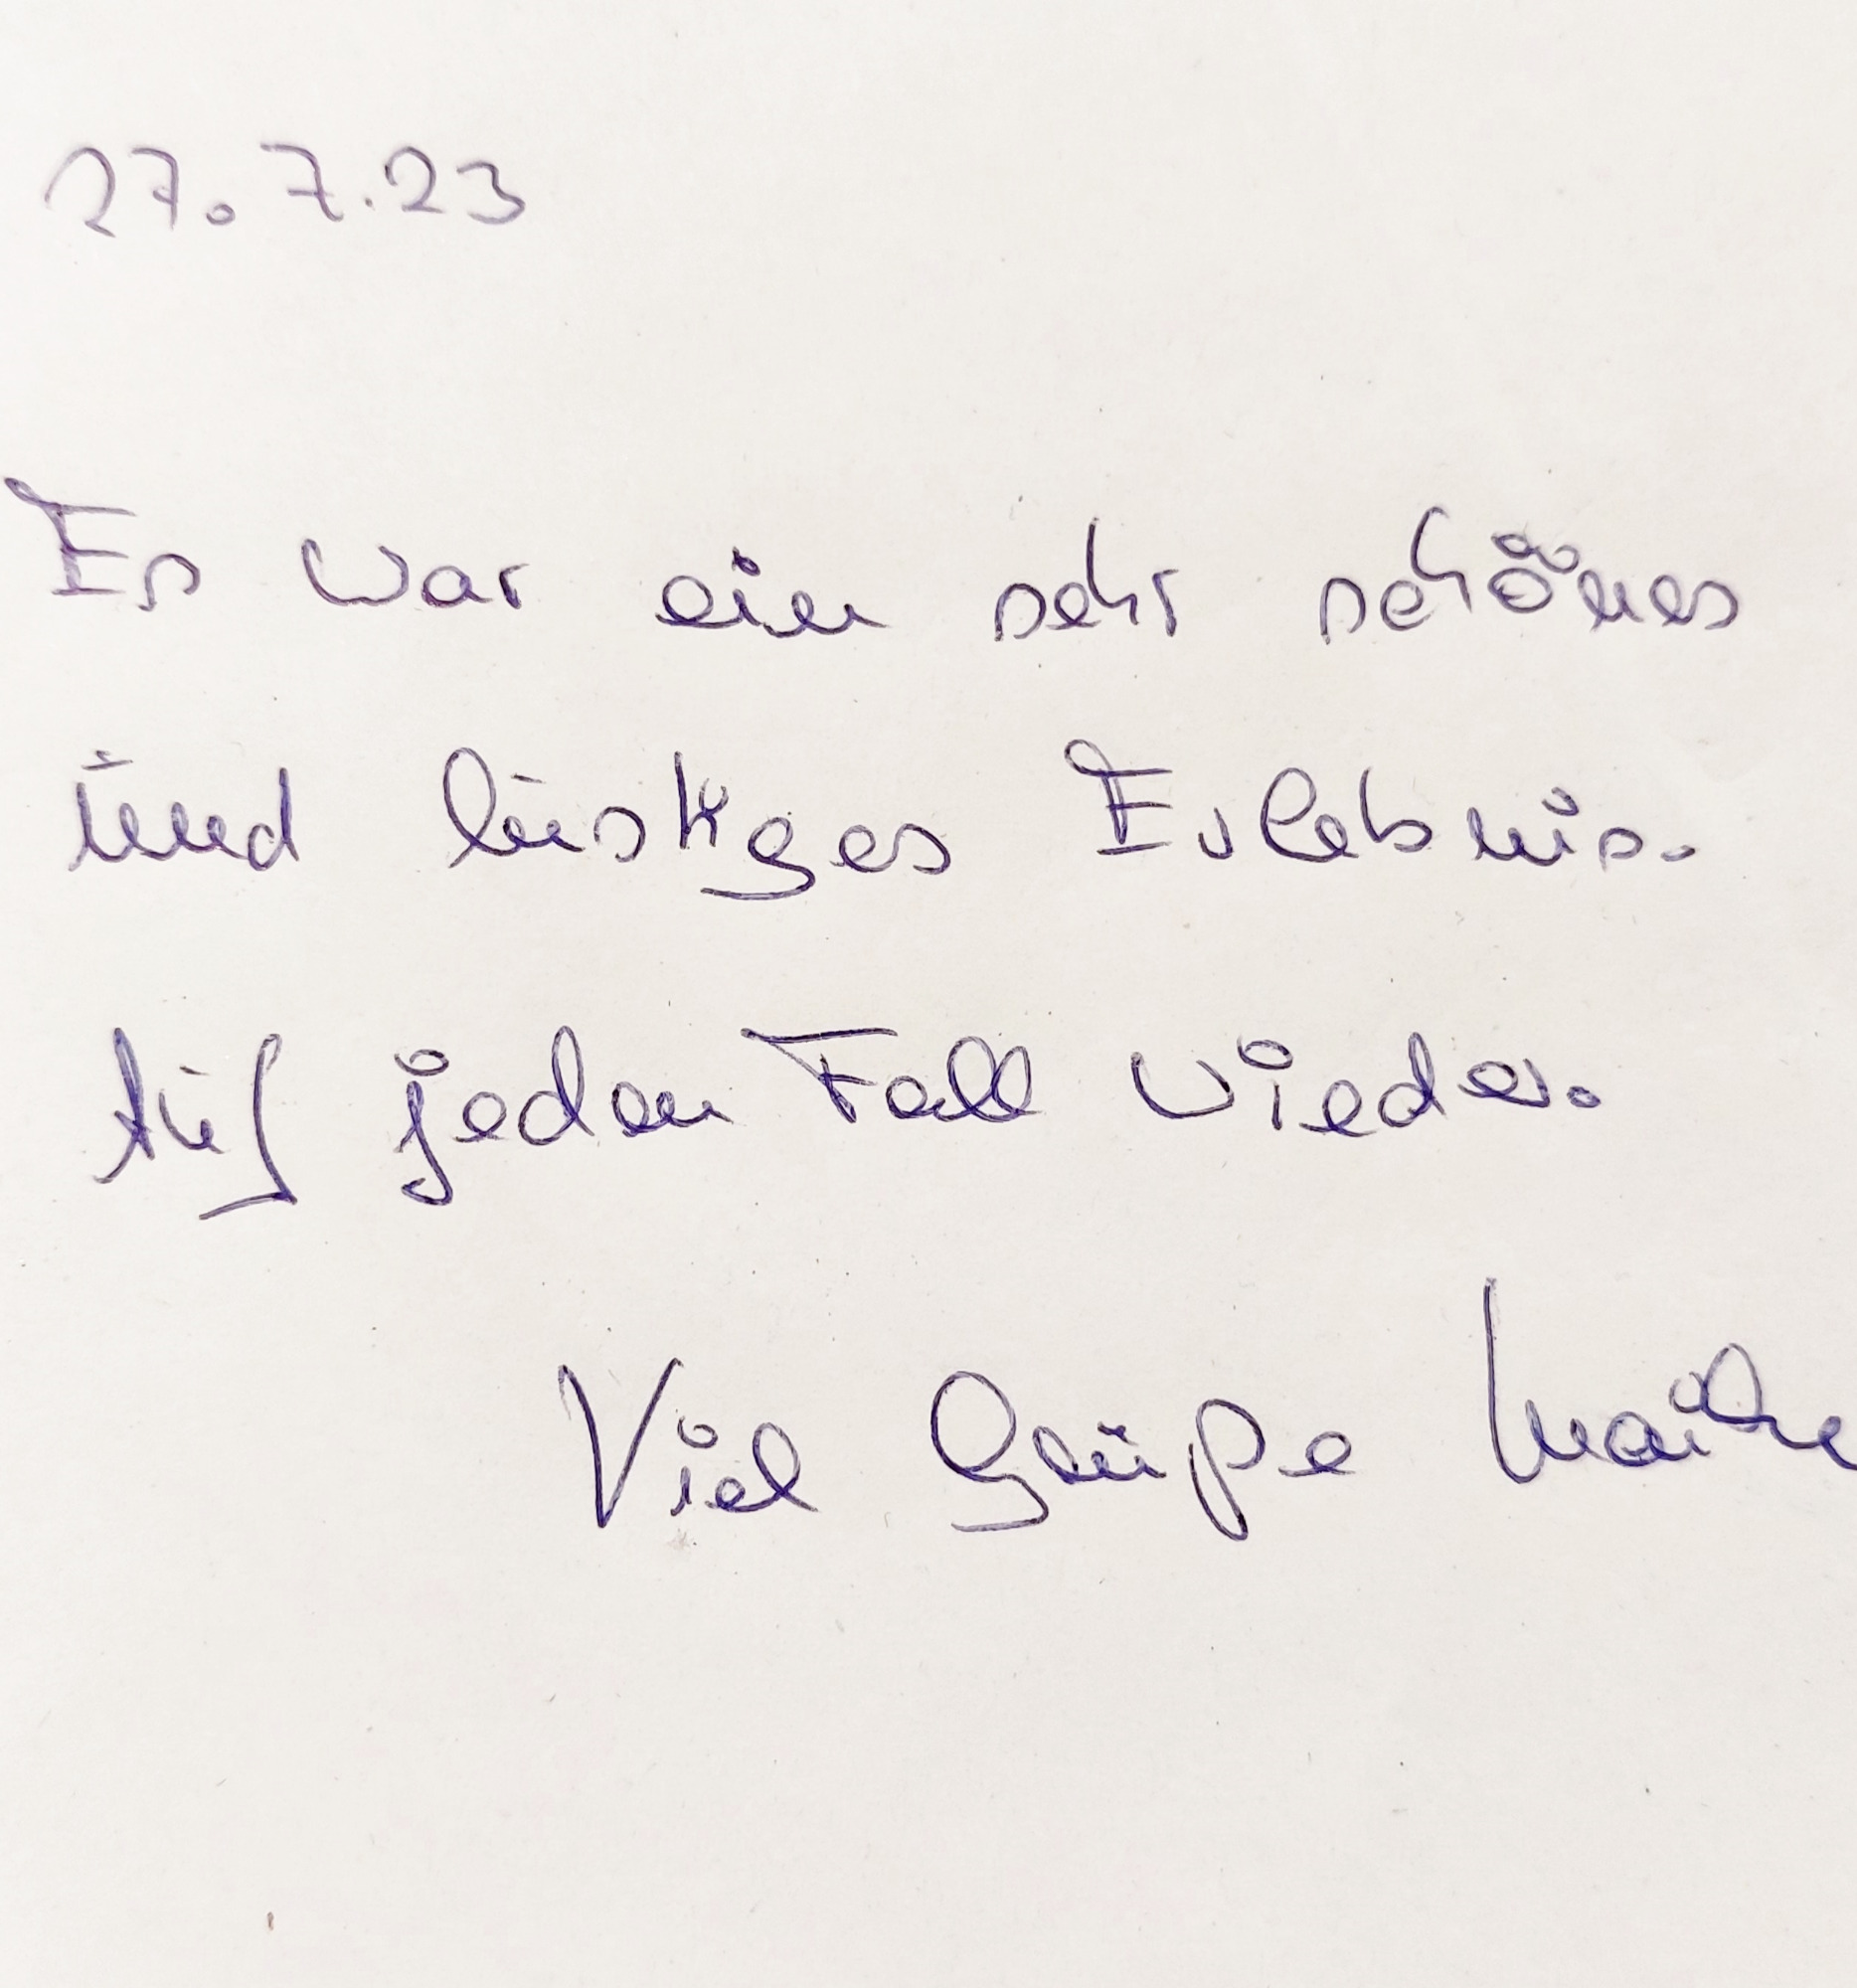 27.7.23
Es war ein sehr schönes
und lustiges Erlebnis.
Auf jeden Fall wieder.
Viel Grüße Maike